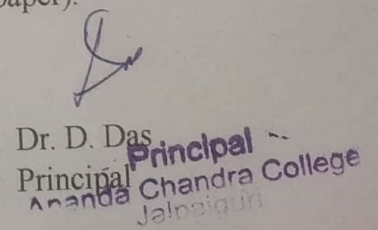 paper).
Dr. D. Das
Principal
Principal
Ananda Chandra College
Jalpaiguri